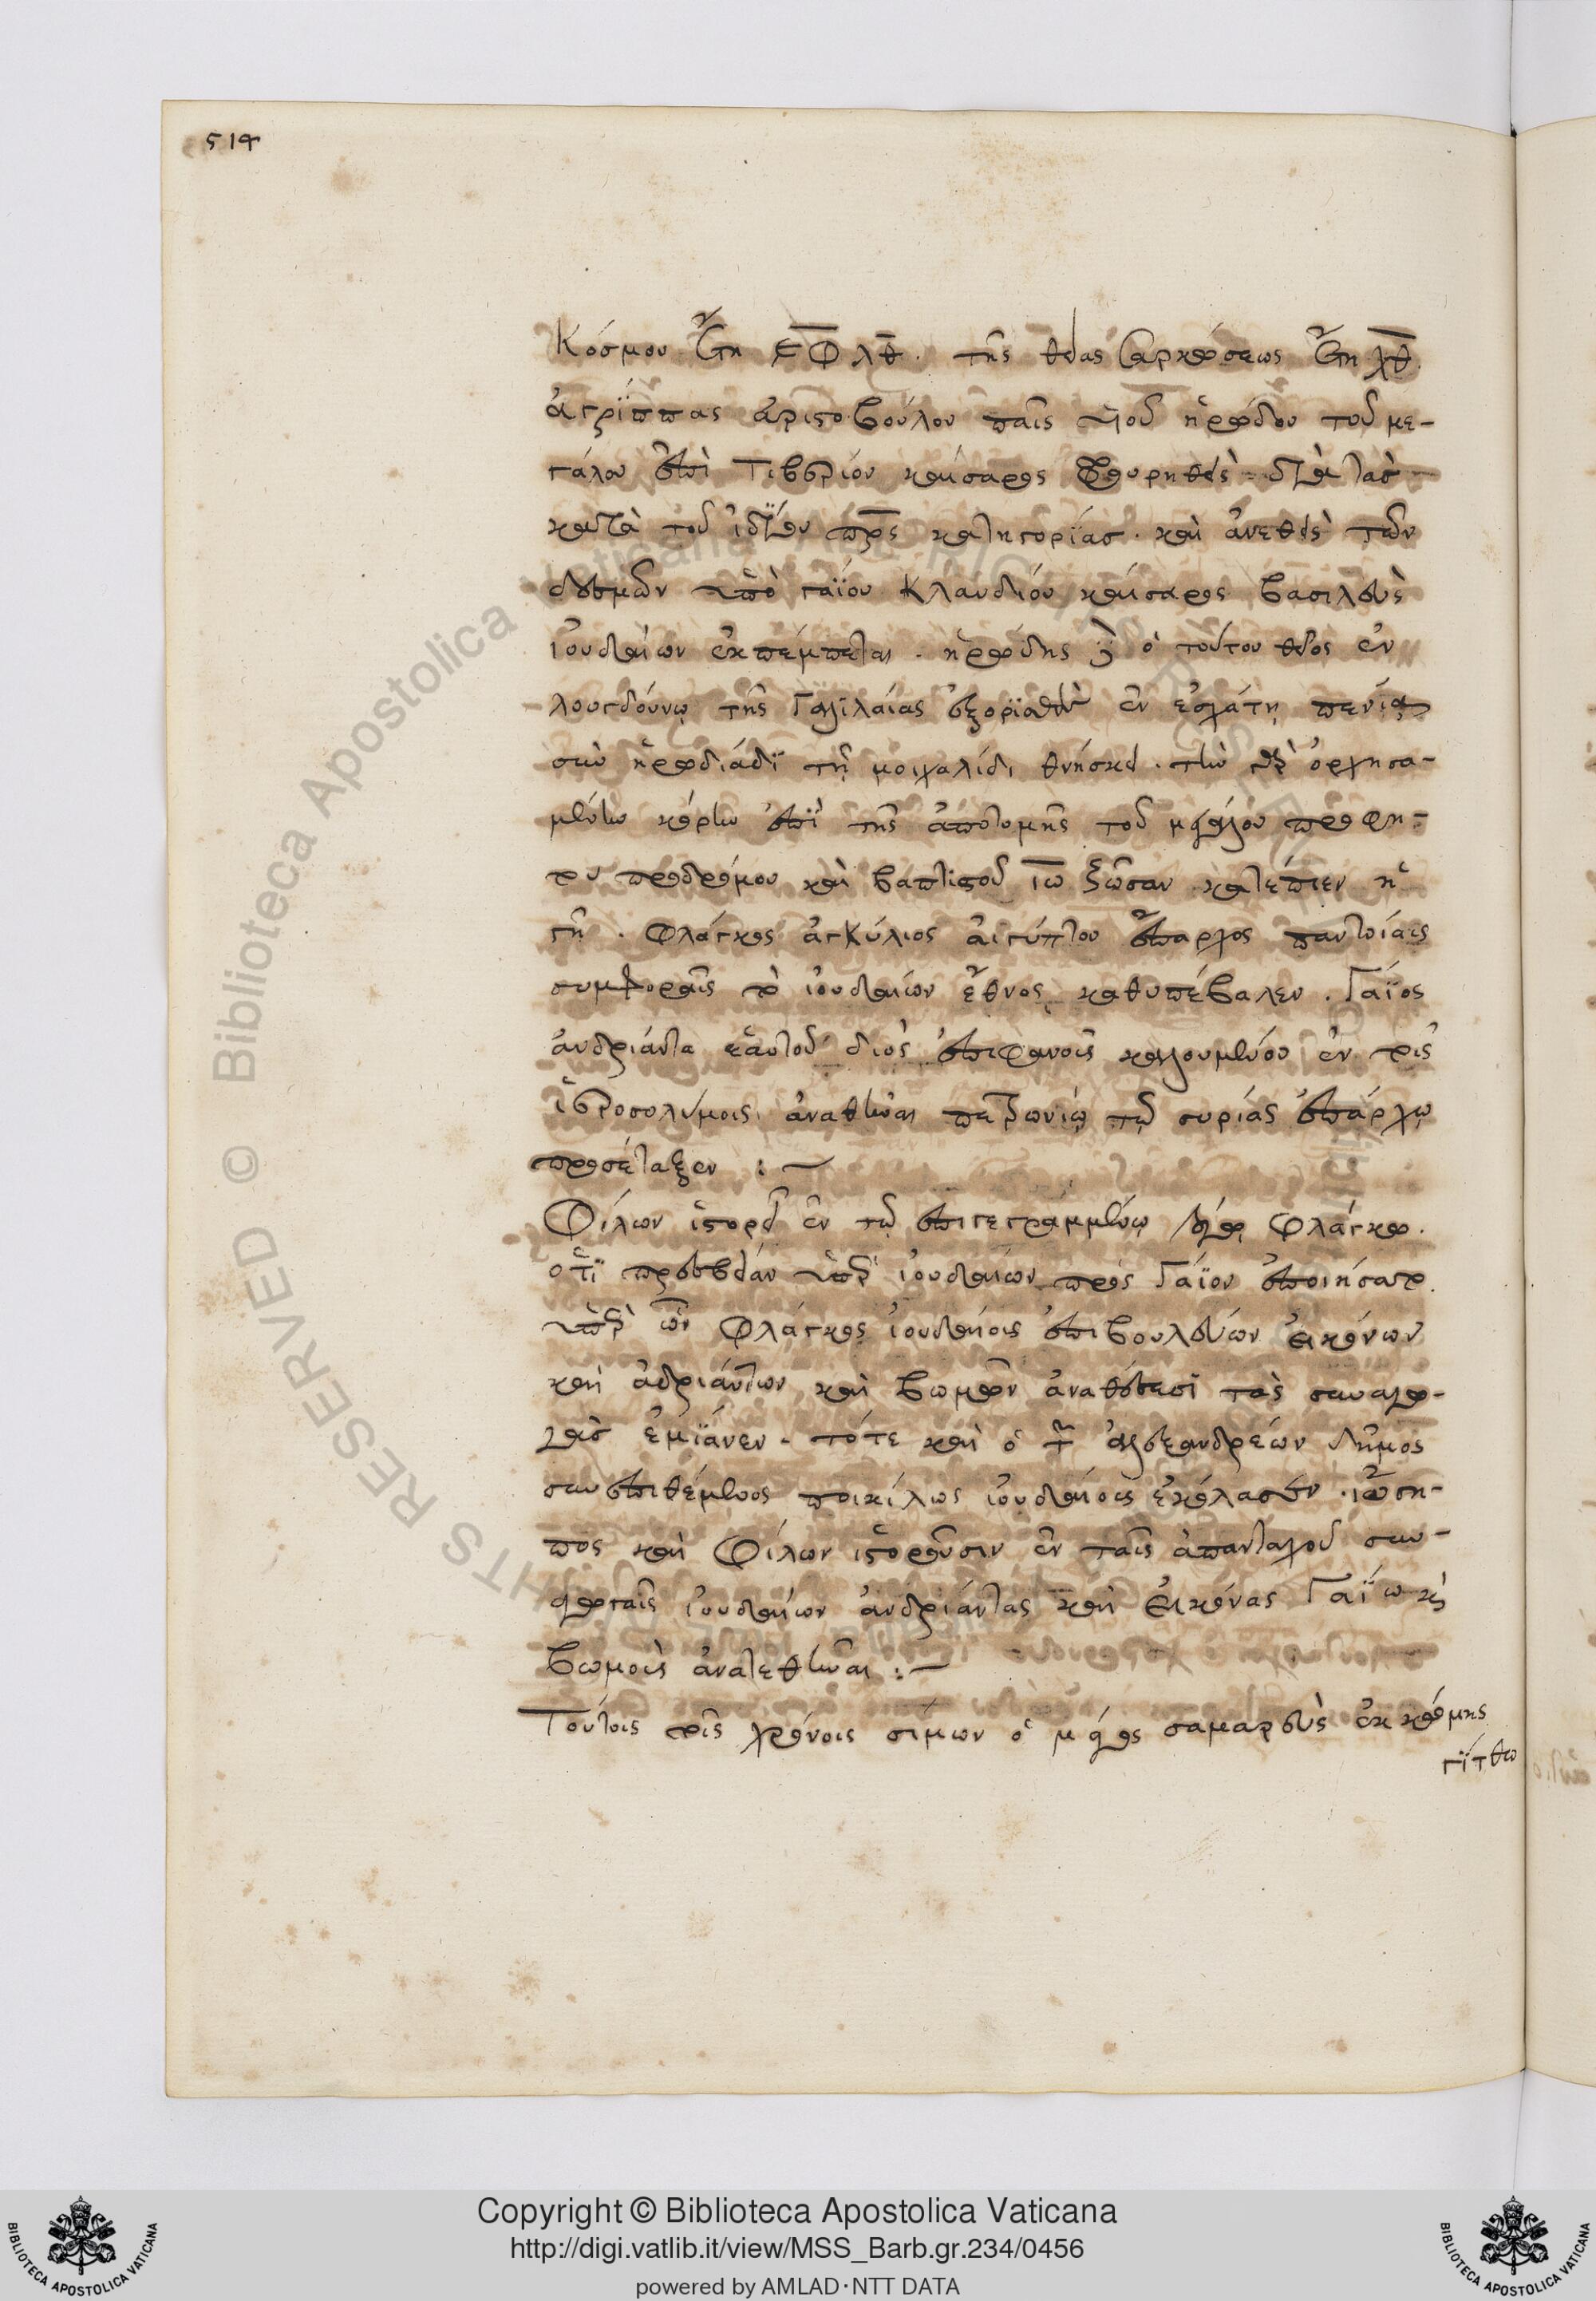 514
Κόσμου ἔτη ͵εφλθ. τῆς θείας σαρκώσεως ἔτη λθ.
ἀγρίππας ἀριστοβούλου παῖς υἱοῦ ἡρώδου τοῦ με-
γάλου ἐπὶ Τιβερίου καίσαρος φρουρηθεὶς διὰ τὰς
κατὰ τοῦ ἰδίου πρς κατηγορίας. καὶ ἀνεθεὶς τῶν
δεσμῶν ὑπὸ γαΐου Κλαυδίου καίσαρος βασιλεὺς
ἰουδαίων ἐκπέμπεται. ἡρώδης δὲ ὁ τούτου θεῖος ἐν
λουγδούνῳ τῆς Γαλιλαίας ἐξορισθεὶς ἐν ἐσχάτῃ πενίᾳ
σὺν ἡρωδιάδι τῇ μοιχαλίδι θνήσκει. τὴν γὰρ ὀρχησα-
μένην κόρην ἐπὶ τῆς ἀποτομῆς τοῦ μεγάλου προφή-
του προδρόμου καὶ βαπτιστοῦ ιω ζῶσαν κατέπιεν ἡ
γῆ. Φλάγκος ἀγκύλιος αἰγύπτου ἔπαρχος παντοίαις
συμφοραῖς τὸ ἰουδαίων ἔθνος καθυπέβαλεν. Γάϊος
ἀνδριάντα ἑαυτοῦ διὸς ἐπιφανοῖς καλουμένου ἐν τοῖς
ἱεροσολύμοις ἀναθεῖναι πετρωνίῳ τῷ συρίας ἐπάρχῳ
προσέταξεν :~
Φίλων ἱστορεῖ ἐν τῷ ἐπιγεγραμμένῳ λόγῳ Φλάγκῳ.
ὅτι πρεσβείαν ὑπὲρ ἰουδαίων πρὸς Γάϊον ἐποιήσατο.
ὑπὲρ ὧν Φλάγκος ἰουδαίοις ἐπιβουλεύων εἰκόνων
καὶ ἀδριάντων καὶ βωμῶν ἀναθέσεσι τὰς συναγω-
γὰς ἐμίανεν. τότε καὶ ὁ τ ἀλεξανδρέων δῆμος
συνεπιθέμενος ποικίλως ἰουδαίοις ἐκόλασεν. ἰώση-
πος καὶ Φίλων ἱστοροῦσιν ἐν ταῖς ἀπανταχοῦ συν-
αγωγαῖς ἰουδαίων ἀνδριάντας καὶ εἰκόνας Γαΐω κὶ
βωμοὺς ἀνατεθῆναι :~
Τούτοις τοῖς χρόνοις σίμων ὁ μάγος σαμαρεὺς ἐκ κώμης
γίτθω
Copyright © Biblioteca Apostolica Vaticana
http://digi.vatlib.it/view/MSS_Barb.gr.234/0456
powered by AMLAD·NTT DATA